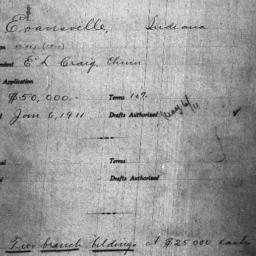 Evansville, Indiana
E L Craig, Chmn
Application
$50,000- Terms 10%
Jan 6, 1911 Drafts Authorized May 6/11
Terms
Drafts Authorized
Two branch bildings at $25000 each